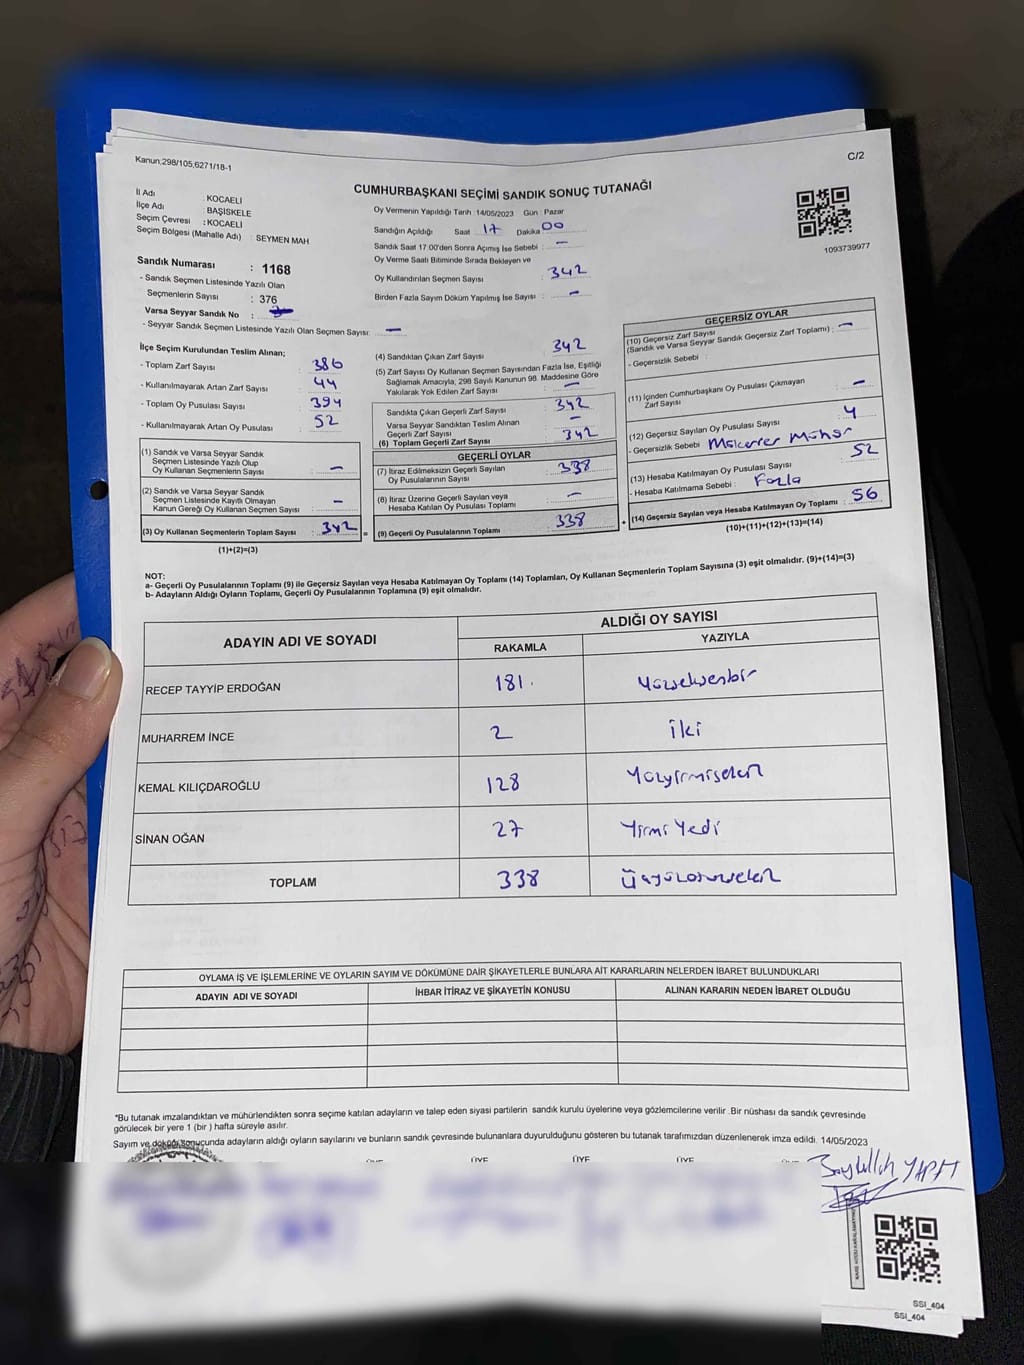 Kanun;298/105,6271/18-1
C/2
CUMHURBAŞKANI SEÇİMİ SANDIK SONUÇ TUTANAĞI
İl Adı : KOCAELİ
İlçe Adı : BAŞİSKELE
Seçim Çevresi : KOCAELİ
Seçim Bölgesi (Mahalle Adı) : SEYMEN MAH
Sandık Numarası : 1168
- Sandık Seçmen Listesinde Yazılı Olan
Seçmenlerin Sayısı : 376
Varsa Seyyar Sandık No :
- Seyyar Sandık Seçmen Listesinde Yazılı Olan Seçmen Sayısı: —
Oy Vermenin Yapıldığı Tarih :14/05/2023 Gün : Pazar
Sandığın Açıldığı Saat 17 Dakika 00
Sandık Saat 17:00'den Sonra Açımış İse Sebebi : —
Oy Verme Saati Bitiminde Sırada Bekleyen ve
Oy Kullandırılan Seçmen Sayısı : 342
Birden Fazla Sayım Döküm Yapılmış İse Sayısı : —
1093739977
İlçe Seçim Kurulundan Teslim Alınan;
- Toplam Zarf Sayısı : 386
- Kullanılmayarak Artan Zarf Sayısı : 44
- Toplam Oy Pusulası Sayısı : 394
- Kullanılmayarak Artan Oy Pusulası : 52
(1) Sandık ve Varsa Seyyar Sandık
Seçmen Listesinde Yazılı Olup
Oy Kullanan Seçmenlerin Sayısı : —
(2) Sandık ve Varsa Seyyar Sandık
Seçmen Listesinde Kayıtlı Olmayan
Kanun Gereği Oy Kullanan Seçmen Sayısı : —
(3) Oy Kullanan Seçmenlerin Toplam Sayısı : 342 =
(1)+(2)=(3)
(4) Sandıktan Çıkan Zarf Sayısı : 342
(5) Zarf Sayısı Oy Kullanan Seçmen Sayısından Fazla İse, Eşitliği
Sağlamak Amacıyla; 298 Sayılı Kanunun 98. Maddesine Göre
Yakılarak Yok Edilen Zarf Sayısı : —
Sandıkta Çıkan Geçerli Zarf Sayısı : 342
Varsa Seyyar Sandıktan Teslim Alınan
Geçerli Zarf Sayısı : —
(6) Toplam Geçerli Zarf Sayısı : 342
GEÇERLİ OYLAR
(7) İtiraz Edilmeksizin Geçerli Sayılan
Oy Pusulalarının Sayısı : 338
(8) İtiraz Üzerine Geçerli Sayılan veya
Hesaba Katılan Oy Pusulası Toplamı : —
(9) Geçerli Oy Pusulalarının Toplamı : 338 +
GEÇERSİZ OYLAR
(10) Geçersiz Zarf Sayısı
(Sandık ve Varsa Seyyar Sandık Geçersiz Zarf Toplamı) : —
- Geçersizlik Sebebi :
(11) İçinden Cumhurbaşkanı Oy Pusulası Çıkmayan
Zarf Sayısı : —
(12) Geçersiz Sayılan Oy Pusulası Sayısı : 4
- Geçersizlik Sebebi : Mükerrer Mühür
(13) Hesaba Katılmayan Oy Pusulası Sayısı : 52
- Hesaba Katılmama Sebebi : Fazla
(14) Geçersiz Sayılan veya Hesaba Katılmayan Oy Toplamı : 56
(10)+(11)+(12)+(13)=(14)
NOT:
a- Geçerli Oy Pusulalarının Toplamı (9) ile Geçersiz Sayılan veya Hesaba Katılmayan Oy Toplamı (14) Toplamları, Oy Kullanan Seçmenlerin Toplam Sayısına (3) eşit olmalıdır. (9)+(14)=(3)
b- Adayların Aldığı Oyların Toplamı, Geçerli Oy Pusulalarının Toplamına (9) eşit olmalıdır.
ADAYIN ADI VE SOYADI
ALDIĞI OY SAYISI
RAKAMLA YAZIYLA
RECEP TAYYİP ERDOĞAN 181. Yüzseksenbir
MUHARREM İNCE 2 İki
KEMAL KILIÇDAROĞLU 128 Yüzyirmisekiz
SİNAN OĞAN 27 Yirmi Yedi
TOPLAM 338 Üçyüzotuzsekiz
OYLAMA İŞ VE İŞLEMLERİNE VE OYLARIN SAYIM VE DÖKÜMÜNE DAİR ŞİKAYETLERLE BUNLARA AİT KARARLARIN NELERDEN İBARET BULUNDUKLARI
ADAYIN ADI VE SOYADI İHBAR İTİRAZ VE ŞİKAYETİN KONUSU ALINAN KARARIN NEDEN İBARET OLDUĞU
*Bu tutanak imzalandıktan ve mühürlendikten sonra seçime katılan adayların ve talep eden siyasi partilerin sandık kurulu üyelerine veya gözlemcilerine verilir .Bir nüshası da sandık çevresinde
görülecek bir yere 1 (bir ) hafta süreyle asılır.
Sayım ve dökümü sonucunda adayların aldığı oyların sayılarını ve bunların sandık çevresinde bulunanlara duyurulduğunu gösteren bu tutanak tarafımızdan düzenlenerek imza edildi. 14/05/2023
ÜYE ÜYE ÜYE ÜYE
SSI_404
SSI_404